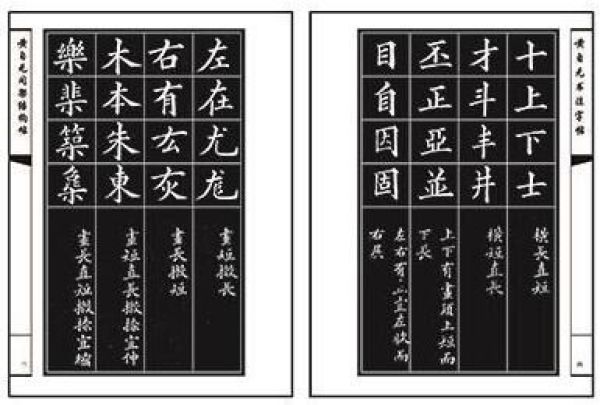 黄自元书法字帖
十上下士
橫長直短
才斗丰井
橫短直長
丕正亞並
上下有畫須上短而
下長
目自因固
左右有直宜左收而
右展
左在尤尨
畫短撇長
右有厷灰
畫長撇短
木本朱東
畫短直長撇捺宜伸
樂棐築
畫長直短撇捺宜縮
黄自元间架结构帖